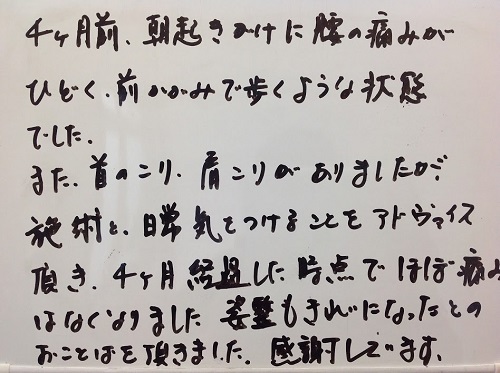 4ヶ月前、朝起きがけに腰の痛みが
ひどく、前かがみで歩くような状態
でした。
また、首のこり、肩こりがありましたが、
施術と、日常気をつけることをアドヴァイス
頂き、4ヶ月経過した時点でほぼ痛み
はなくなりました 姿整もきれいになったとの
おことばを頂きました。感謝してます。